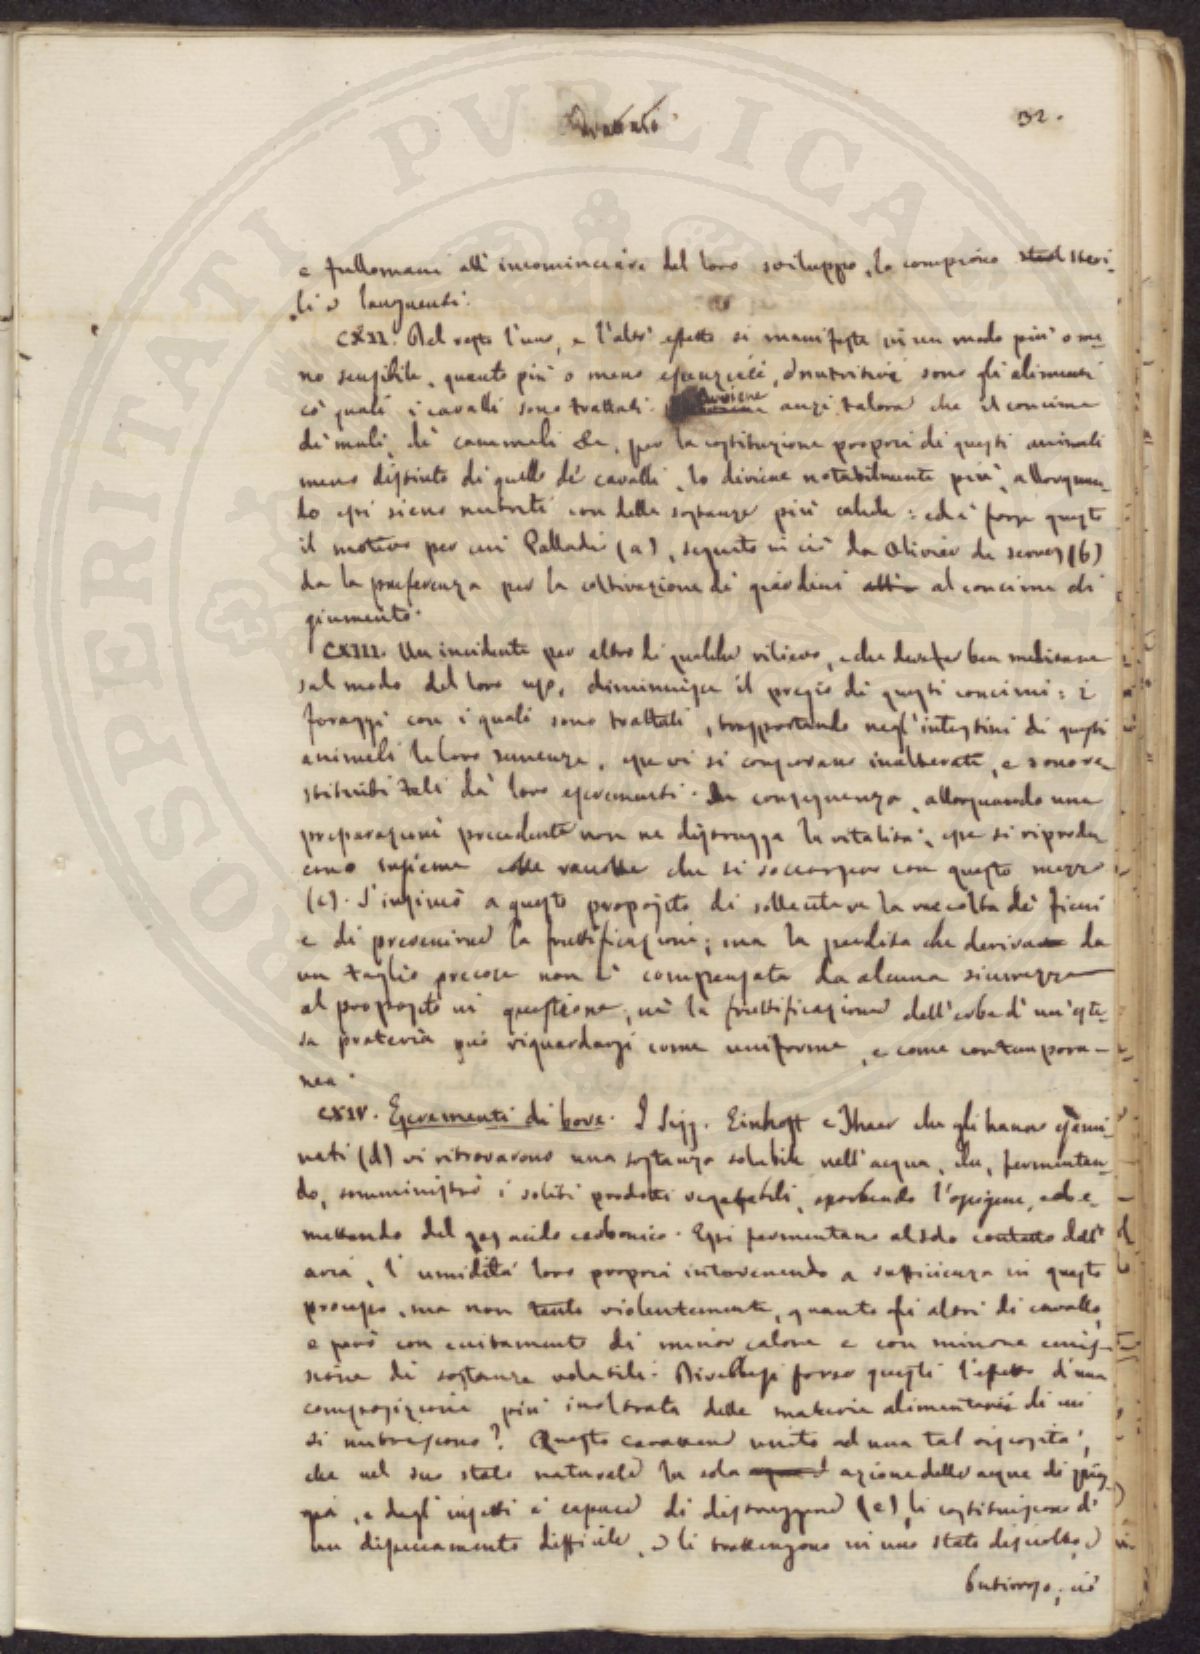 32.
e fullomani all'incominciare del loro sviluppo, lo compiono steri-
li e languenti.
CXII. Del resto l'uno, e l'altro effetto si manifesta in un modo più o me-
no sensibile, quanto più o meno essenziali, e nutritivi sono gli alimenti
co' quali i cavalli sono trattati. Avviene anzi talora che il concime
de' muli, de' cammeli &c., per la costituzione propria di questi animali
meno distinto di quello de' cavalli, lo diviene notabilmente più, allorquan-
do essi sieno nutriti con delle sostanze più calide: ed è forse questo
il motivo per cui Palladio (a), seguito in ciò da Olivier de Serres (b)
da la preferenza per la coltivazione de' giardini al concime di
giumento.
CXIII. Un incidente per altro di qualche rilievo, e che deve far ben meditare
sul modo del loro uso, diminuisce il pregio di questi concimi: i
foraggi con i quali sono trattati, trasportando negl'intestini di questi
animali le loro semenze, esse vi si conservano inalterate, e sono re-
stituite tali da' loro escrementi. In conseguenza, allorquando una
preparazione precedente non ne distrugga la vitalità, esse si riprodu
cono insieme colle raccolte che si soccorsero con questo mezzo
(c). S'insinuò a questo proposito di sollecitare la raccolta de' fieni
e di prevenirne la fruttificazione; ma la perdita che deriva da
un taglio precoce non è compensata da alcuna sicurezza
al proposito in questione, nè la fruttificazione dell'erbe d'un'este-
sa prateria può riguardarsi come uniforme, e come contempora-
nea.
CXIV. Escrementi di bove. I Sigg. Einhoff e Thaer che gli hanno esami-
nati (d) vi ritrovarono una sostanza solubile nell'acqua, che, fermentan-
do, somministrò i soliti prodotti vegetabili, assorbendo l'ossigene, ed e-
mettendo del gas acido carbonico. Essi fermentano al solo contatto dell'
aria, l'umidità loro propria intervenendo a sufficienza in questo
processo, ma non tanto violentemente, quanto gli altri di cavallo,
e però con eccitamento di minor calore e con minore emis-
sione di sostanze volatili. forse questi l'effetto d'una
composizione più inoltrata delle materie alimentari di cui
si nutriscono? Questo carattere unito ad una tal viscosità,
che nel suo stato naturale la sola azione delle acque di piog-
gia, e degl'insetti è capace di distruggere (e), li costituiscono d'
un disseccamento difficile, e li trattengono in uno stato disciolto, e
butirroso; ciò